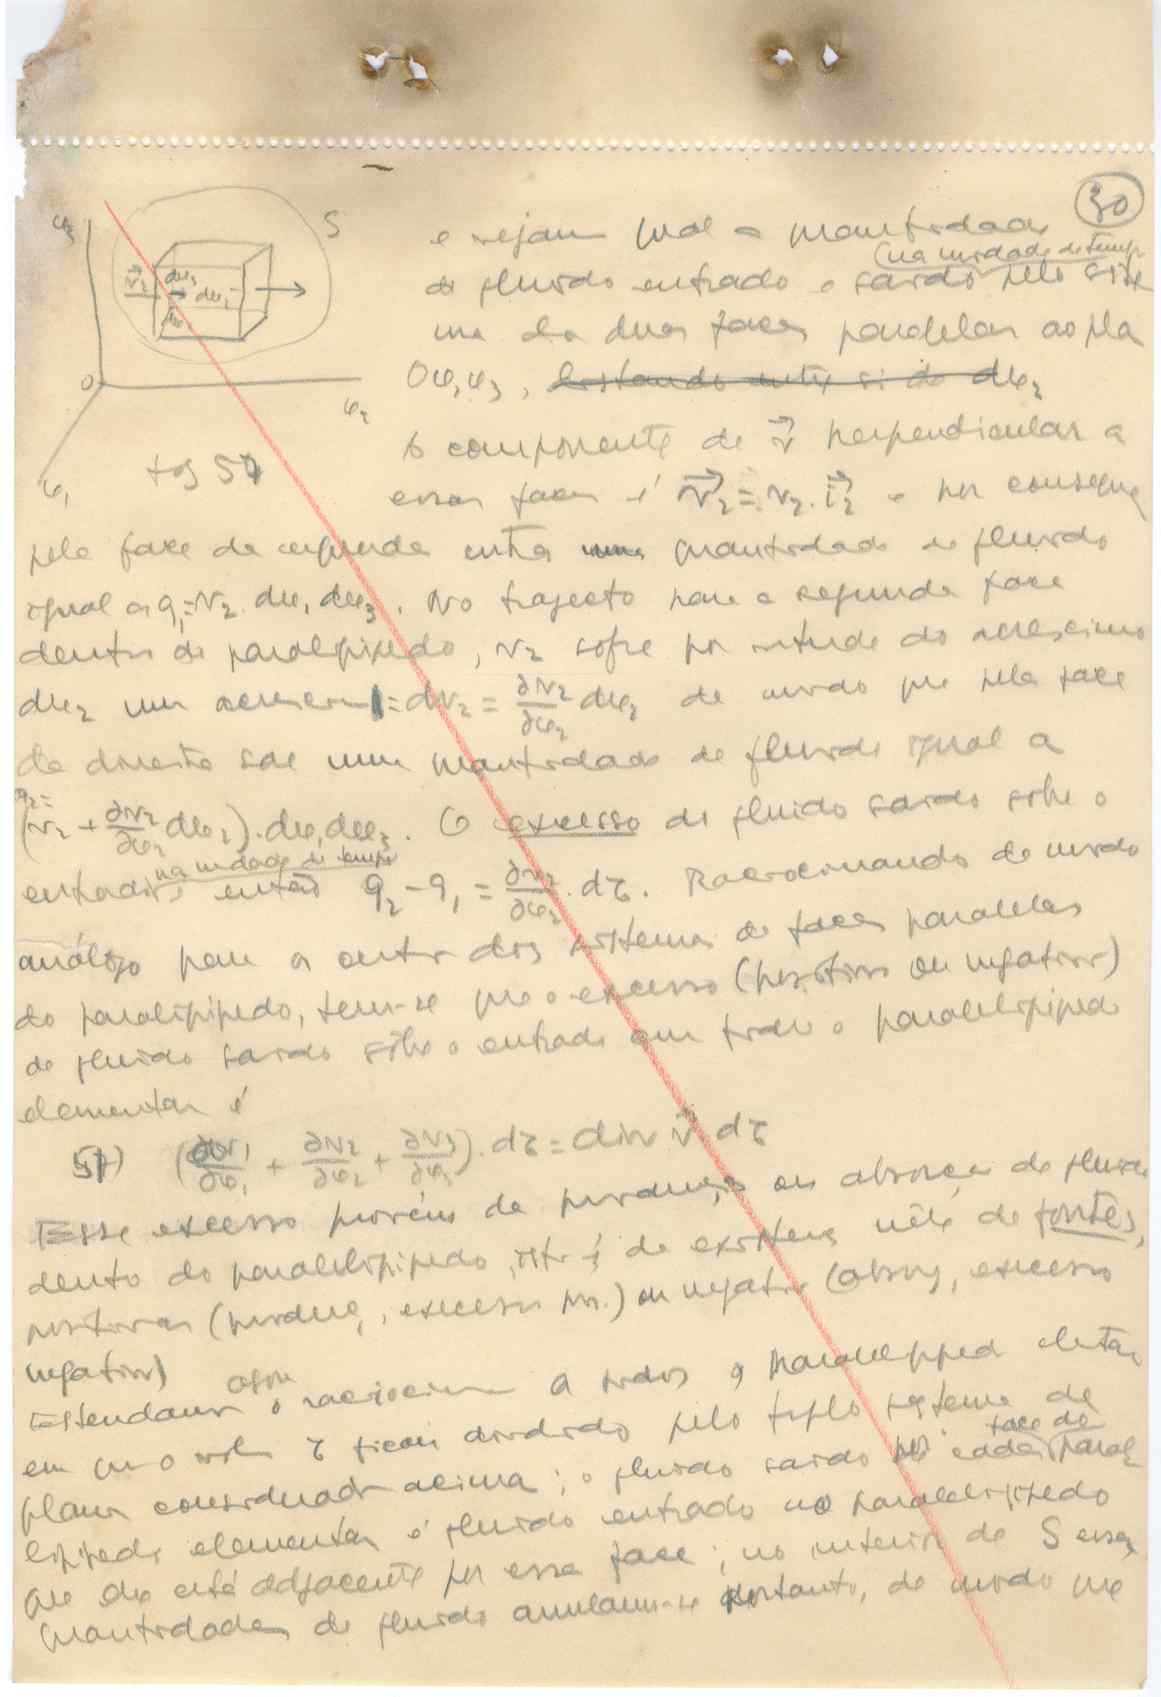 30
φ3
S
v⃗2 dφ3 dφ2
O
φ2
φ1
fig 57
e vejam qual a quantidade
(na unidade de tempo
de fluido entrado e saido pelo siste
ma das duas faces paralelas ao pla
Oφ1φ3, dφ2
A componente de v⃗ perpendicular a
essas faces é v⃗2 = v2 . i⃗2 e por consegu
pela face da esquerda entra uma quantidade de fluido
igual a q1 = v2 . dφ1 dφ3 . No trajecto para a segunda face
dentro do paralepipedo, v2 sofre por virtude do acrescimo
dφ2 um acrescimo = dv2 = ∂v2/∂φ2 dφ2 de modo que pela face
da direita sae uma quantidade de fluido igual a
q2 =
(v2 + ∂v2/∂φ2 dφ2) . dφ1 dφ3 . O excesso de fluido saido sôbre o
na unidade de tempo
entrado é então q2 - q1 = ∂v2/∂φ2 . dτ . Raciocinando de modo
análogo para os outros dois sistemas de faces paralelas
do paralepipedo, tem-se que o excesso (positivo ou negativo)
de fluido saido sôbre o entrado em todo o paralelepipedo
elementar é
57) (∂v1/∂φ1 + ∂v2/∂φ2 + ∂v3/∂φ3) . dτ = div v⃗ dτ
Esse excesso provém da produção ou absorção de fluido
dentro do paralelepipedo, isto é da existencia nêle de fontes,
positivas (produç, excesso pos.) ou negativas (absorç, excesso
negativo)
Estendamos o raciocinio a todos os paralelepiped
em que o vol τ ficou dividido pelo triplo sistema de
face de
planos considerado acima ; o fluido saido por cada paral
lipipedo elementar é fluido entrado no paralelepipedo
que lhe está adjacente por essa face ; no interior de S essas
quantidades de fluido anulam-se portanto, de modo que